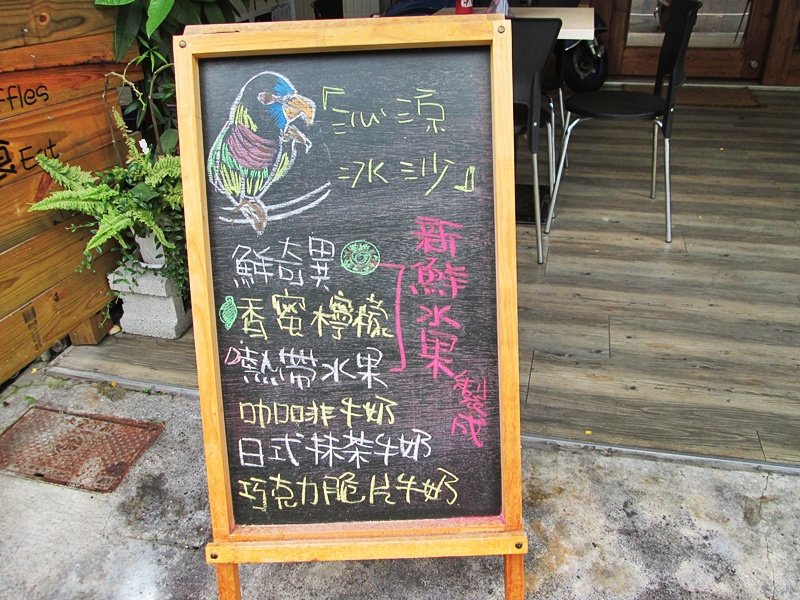 ffles
Eat
『沁涼
冰沙』
鮮奇異
香蜜檸檬
熱帶水果
新鮮水果製成
咖啡牛奶
日式抹茶牛奶
巧克力脆片牛奶